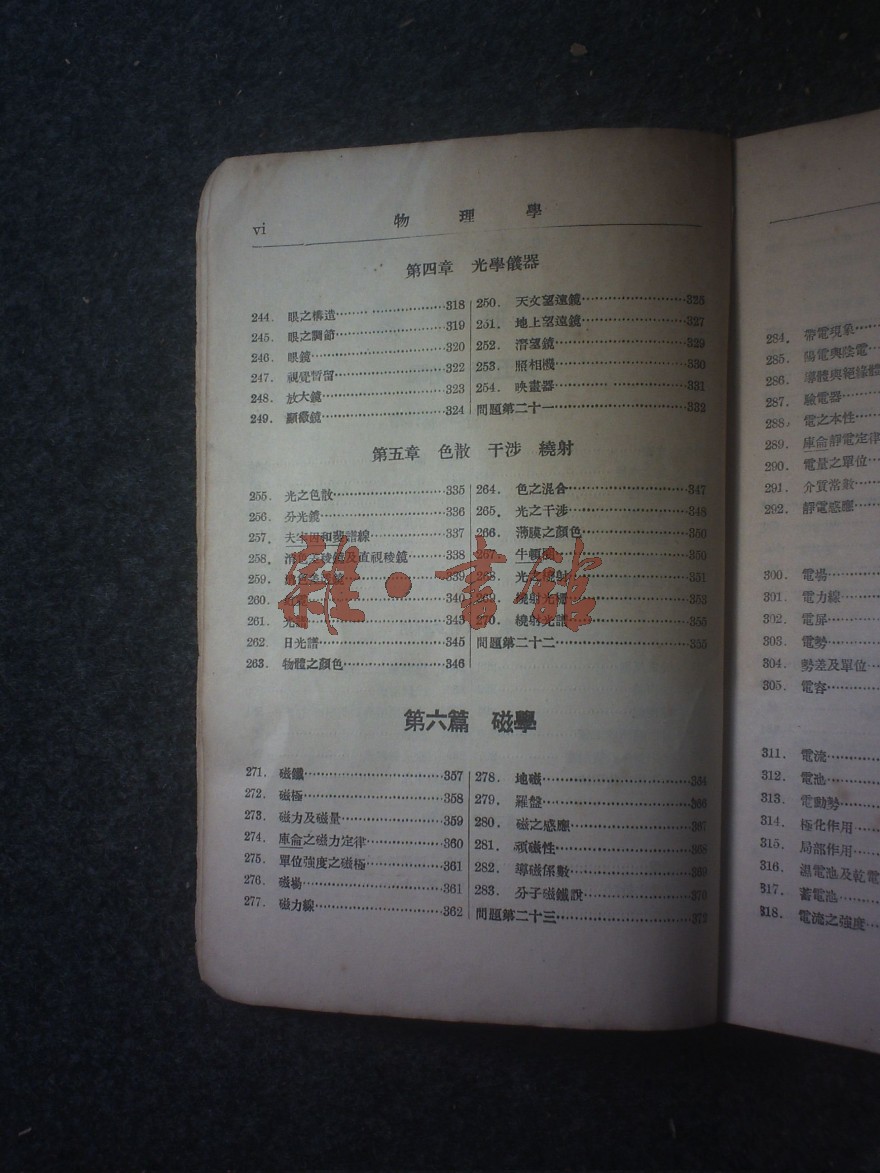 vi
物理學
第四章 光學儀器
244. 眼之構造 318
245. 眼之調節 319
246. 眼鏡 320
247. 視覺暫留 322
248. 放大鏡 323
249. 顯微鏡 324
250. 天文望遠鏡
251. 地上望遠鏡 327
252. 潛望鏡 329
253. 照相機 330
254. 映畫器 331
問題第二十一 332
第五章 色散 干涉 繞射
255. 光之色散 335
256. 分光鏡 336
257. 夫 和斐譜線 337
258. 及直視稜鏡 338
259. 339
260. 340
261. 343
262. 日光譜 345
263. 物體之顏色 346
264. 色之混合 347
265. 光之干涉 348
266. 薄膜之顏色 350
267. 牛頓 350
268. 光之繞射 351
269. 繞射光柵 353
270. 繞射光譜 355
問題第二十二 355
第六篇 磁學
271. 磁鐵 357
272. 磁極 358
273. 磁力及磁量 359
274. 庫侖之磁力定律 360
275. 單位強度之磁極 361
276. 磁場 361
277. 磁力線 362
278. 地磁 364
279. 羅盤 366
280. 磁之感應 367
281. 頑磁性 368
282. 導磁係數 369
283. 分子磁鐵說 370
問題第二十三 372
284. 帶電現象
285. 陽電與陰電
286. 導體與絕緣體
287. 驗電器
288. 電之本性
289. 庫侖靜電定律
290. 電量之單位
291. 介質常數
292. 靜電感應
300. 電場
301. 電力線
302. 電屏
303. 電勢
304. 勢差及單位
305. 電容
311. 電流
312. 電池
313. 電動勢
314. 極化作用
315. 局部作用
316. 濕電池及乾電
317. 蓄電池
318. 電流之強度
雜·書館